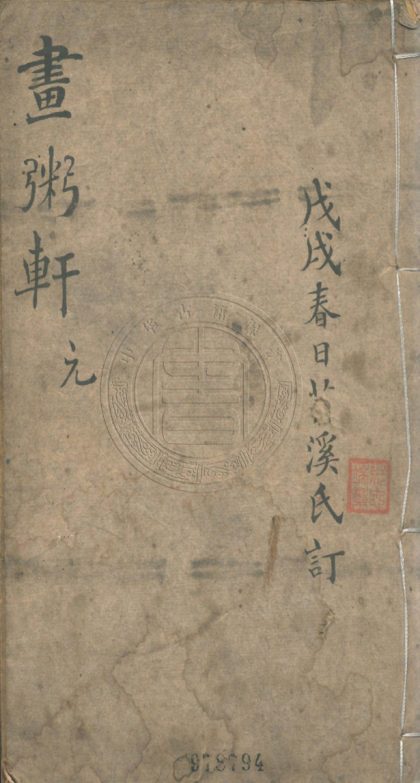 戊戌春日溪氏訂
畫粥軒 元
978794